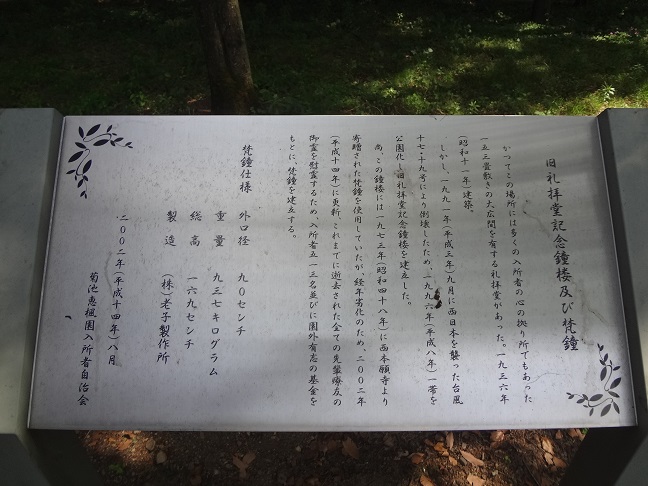 旧礼拝堂記念鐘楼及び梵鐘
かつてこの場所には多くの入所者の心の拠り所でもあった
一五三畳敷きの大広間を有する礼拝堂があった。一九三六年
(昭和十一年)建築。
しかし、一九九一年(平成三年)九月に西日本を襲った台風
十七・十九号により倒壊したため、一九九六年(平成八年)一帯を
公園化し旧礼拝堂記念鐘楼を建立した。
尚、この鐘楼には一九七三年(昭和四十八年)に西本願寺より
寄贈された梵鐘を使用していたが、経年劣化のため、二〇〇二年
(平成十四年)に更新、これまでに逝去された全ての先輩療友の
御霊を慰霊するため、入所者五一三名並びに園外有志の基金を
もとに、梵鐘を建立する。
梵鐘仕様 外口径 九〇センチ
重量 九三七キログラム
総高 一六九センチ
製造 (株)老子製作所
二〇〇二年(平成十四年)八月
菊池恵楓園入所者自治会